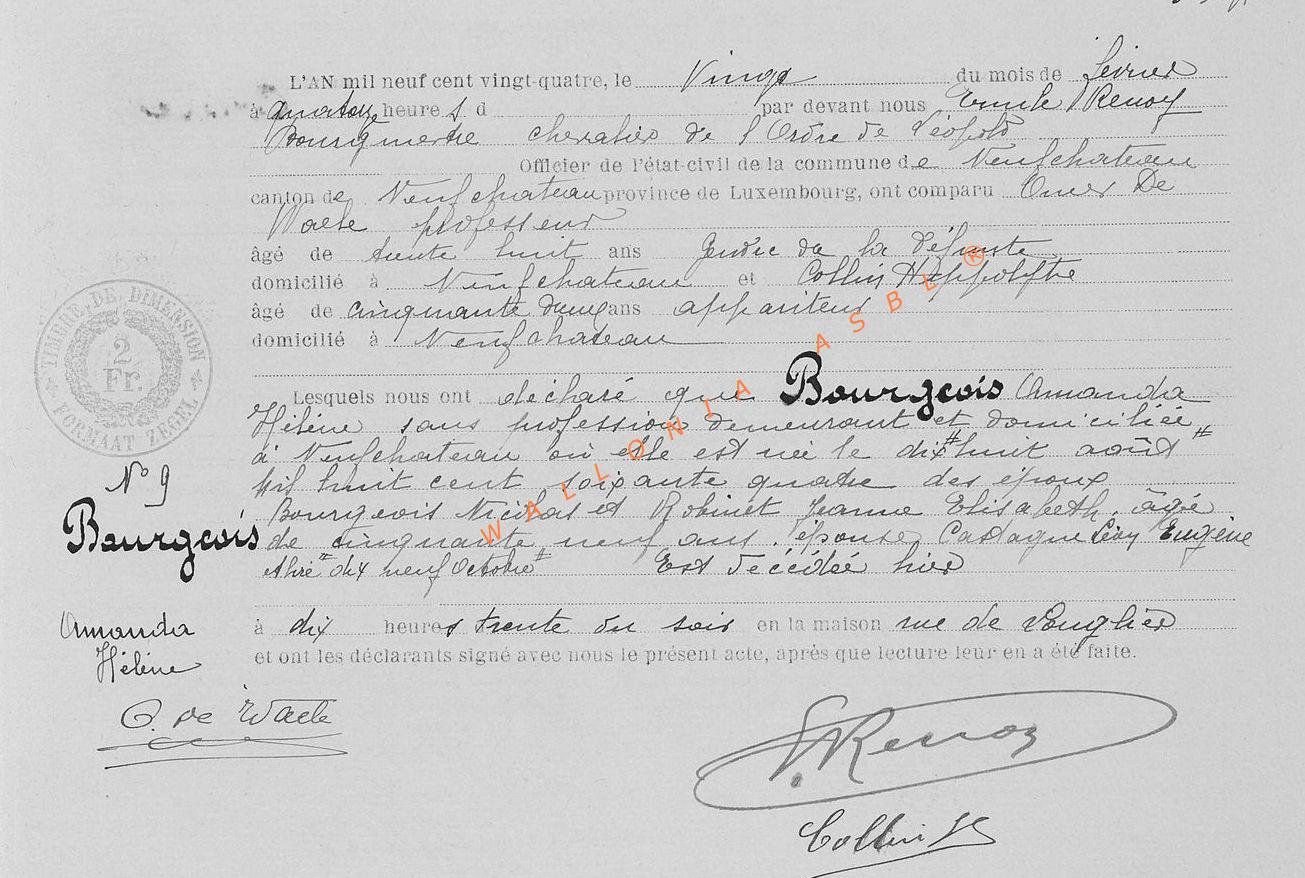 L'AN mil neuf cent vingt-quatre, le Vingt du mois de février
à quatorze heures d par devant nous Emile Renoy
Bourgmestre chevalier de l'Ordre de Léopold
Officier de l'état-civil de la commune de Neufchateau
canton de Neufchateau province de Luxembourg, ont comparu Omer De
Waele professeur
âgé de trente huit ans Gendre de la défunte
domicilié à Neufchateau et Collin Hippolyte
âgé de cinquante ans appariteur
domicilié à Neufchateau
Lesquels nous ont déclaré que Bourgeois Amanda
Hélène sans profession demeurant et domiciliée
à Neufchateau où elle est née le dix huit août
Mil huit cent soixante quatre des époux
Bourgeois Nicolas et Robinet Jeanne Elisabeth, âgée
de cinquante neuf ans, épouse Castagne Eugène
dix neuf Octobre Est décédée hier
à dix heures trente du soir en la maison rue de Longlier
et ont les déclarants signé avec nous le présent acte, après que lecture leur en a été faite.
TIMBRE DE DIMENSION
2
Fr.
FORMAAT ZEGEL
N° 9
Bourgeois
Amanda
Hélène
O. De Waele
E. Renoy
Collin H
WALLONIA ASBL ®